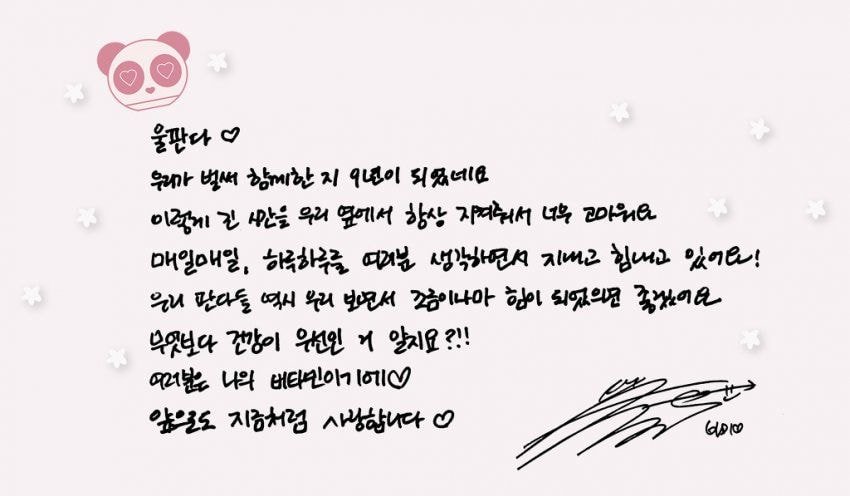 울판다♡
우리가 벌써 함께한 지 9년이 되었네요
이렇게 긴 시간을 우리 옆에서 항상 지켜줘서 너무 고마워요
매일매일, 하루하루를 여러분 생각하면서 지내고 힘내고 있어요!
우리 판다들 역시 우리 보면서 조금이나마 힘이 되었으면 좋겠어요
무엇보다 건강이 우선인 거 알지요?!!
여러분은 나의 비타민이기에♡
앞으로도 지금처럼 사랑합니다♡